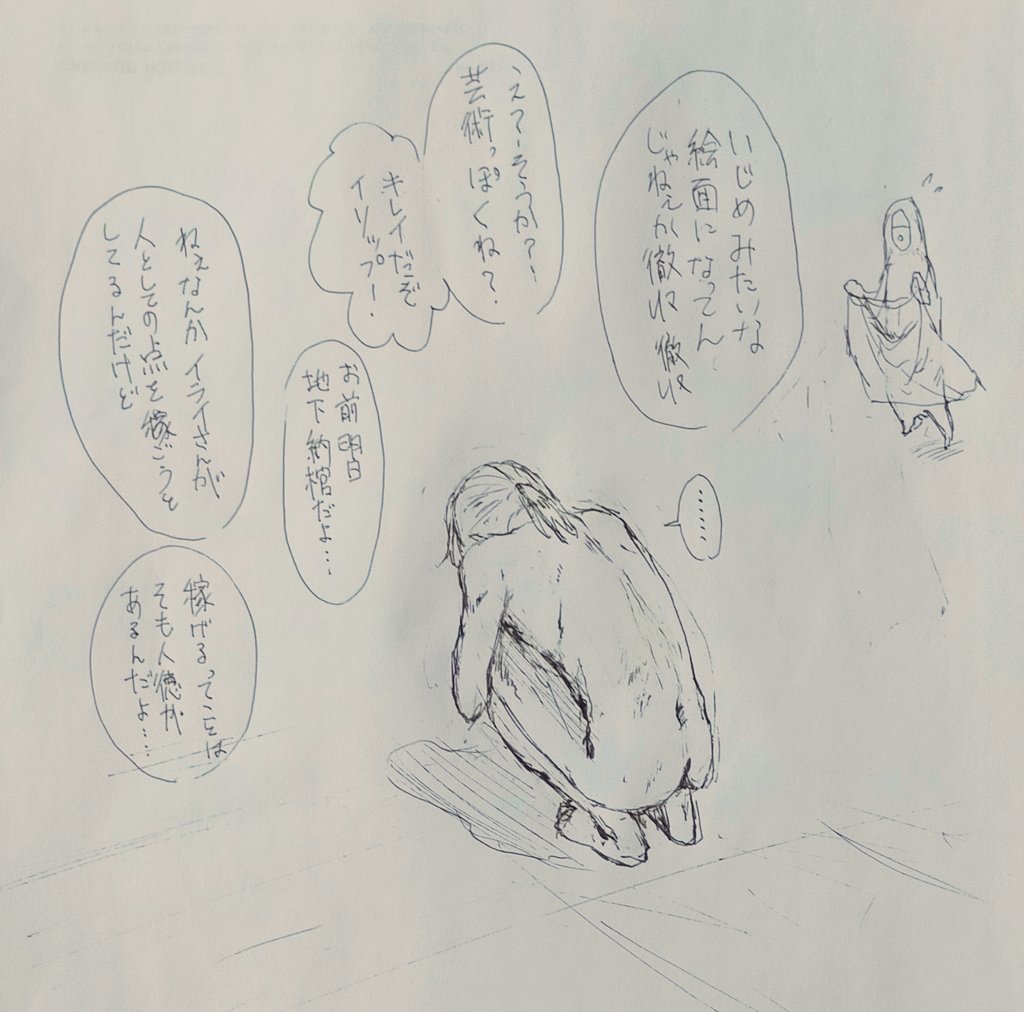 いじめみたいな
絵面になってん
じゃねぇか徹収徹収
えーそうか?!
芸術っぽくね?
キレイだぞ
イソップ!
お前明日
地下納棺だよ…
………
ねぇなんかイライさんが
人としての点を稼ごうと
してるんだけど
稼げるってことは
そも人徳が
あるんだよ…